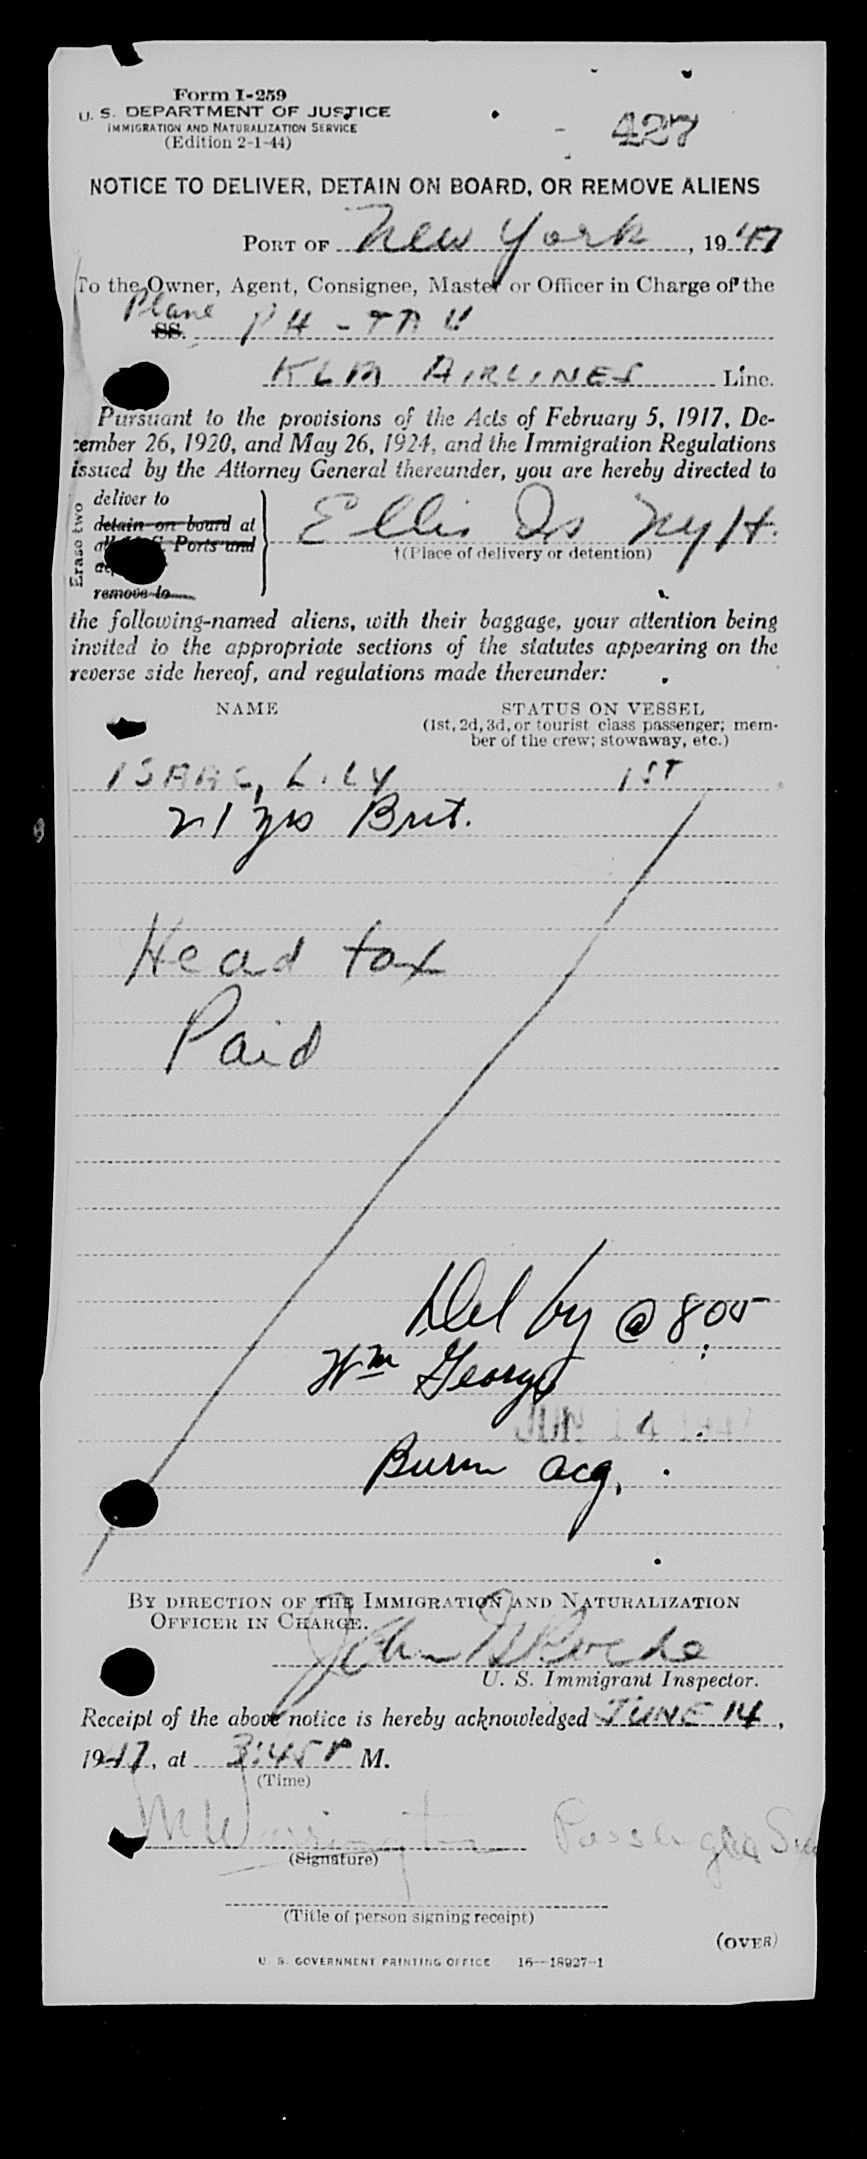 Form I-259
U. S. DEPARTMENT OF JUSTICE
IMMIGRATION AND NATURALIZATION SERVICE
(Edition 2-1-44)
427
NOTICE TO DELIVER, DETAIN ON BOARD, OR REMOVE ALIENS
PORT OF New York, 1947
To the Owner, Agent, Consignee, Master or Officer in Charge of the
Plane
SS. PH-TAU
KLM AIRLINES Line.
Pursuant to the provisions of the Acts of February 5, 1917, De-
cember 26, 1920, and May 26, 1924, and the Immigration Regulations
issued by the Attorney General thereunder, you are hereby directed to
Erase two
deliver to
detain on board at
all U.S. Ports and
remove to
Ellis Is NyH.
†(Place of delivery or detention)
the following-named aliens, with their baggage, your attention being
invited to the appropriate sections of the statutes appearing on the
reverse side hereof, and regulations made thereunder:
NAME
STATUS ON VESSEL
(1st, 2d, 3d, or tourist class passenger; mem-
ber of the crew; stowaway, etc.)
ISAAC, LILY 1ST
21 yrs Brit.
Head tax
Paid
Del by @ 805
Wm George
JUN 14
Burm acq.
BY DIRECTION OF THE IMMIGRATION AND NATURALIZATION
OFFICER IN CHARGE.
John Roche
U. S. Immigrant Inspector.
Receipt of the above notice is hereby acknowledged JUNE 14,
1947, at 3:45 P M.
(Time)
Passenger
(Signature)
(Title of person signing receipt)
(OVER)
U. S. GOVERNMENT PRINTING OFFICE 16—18927-1